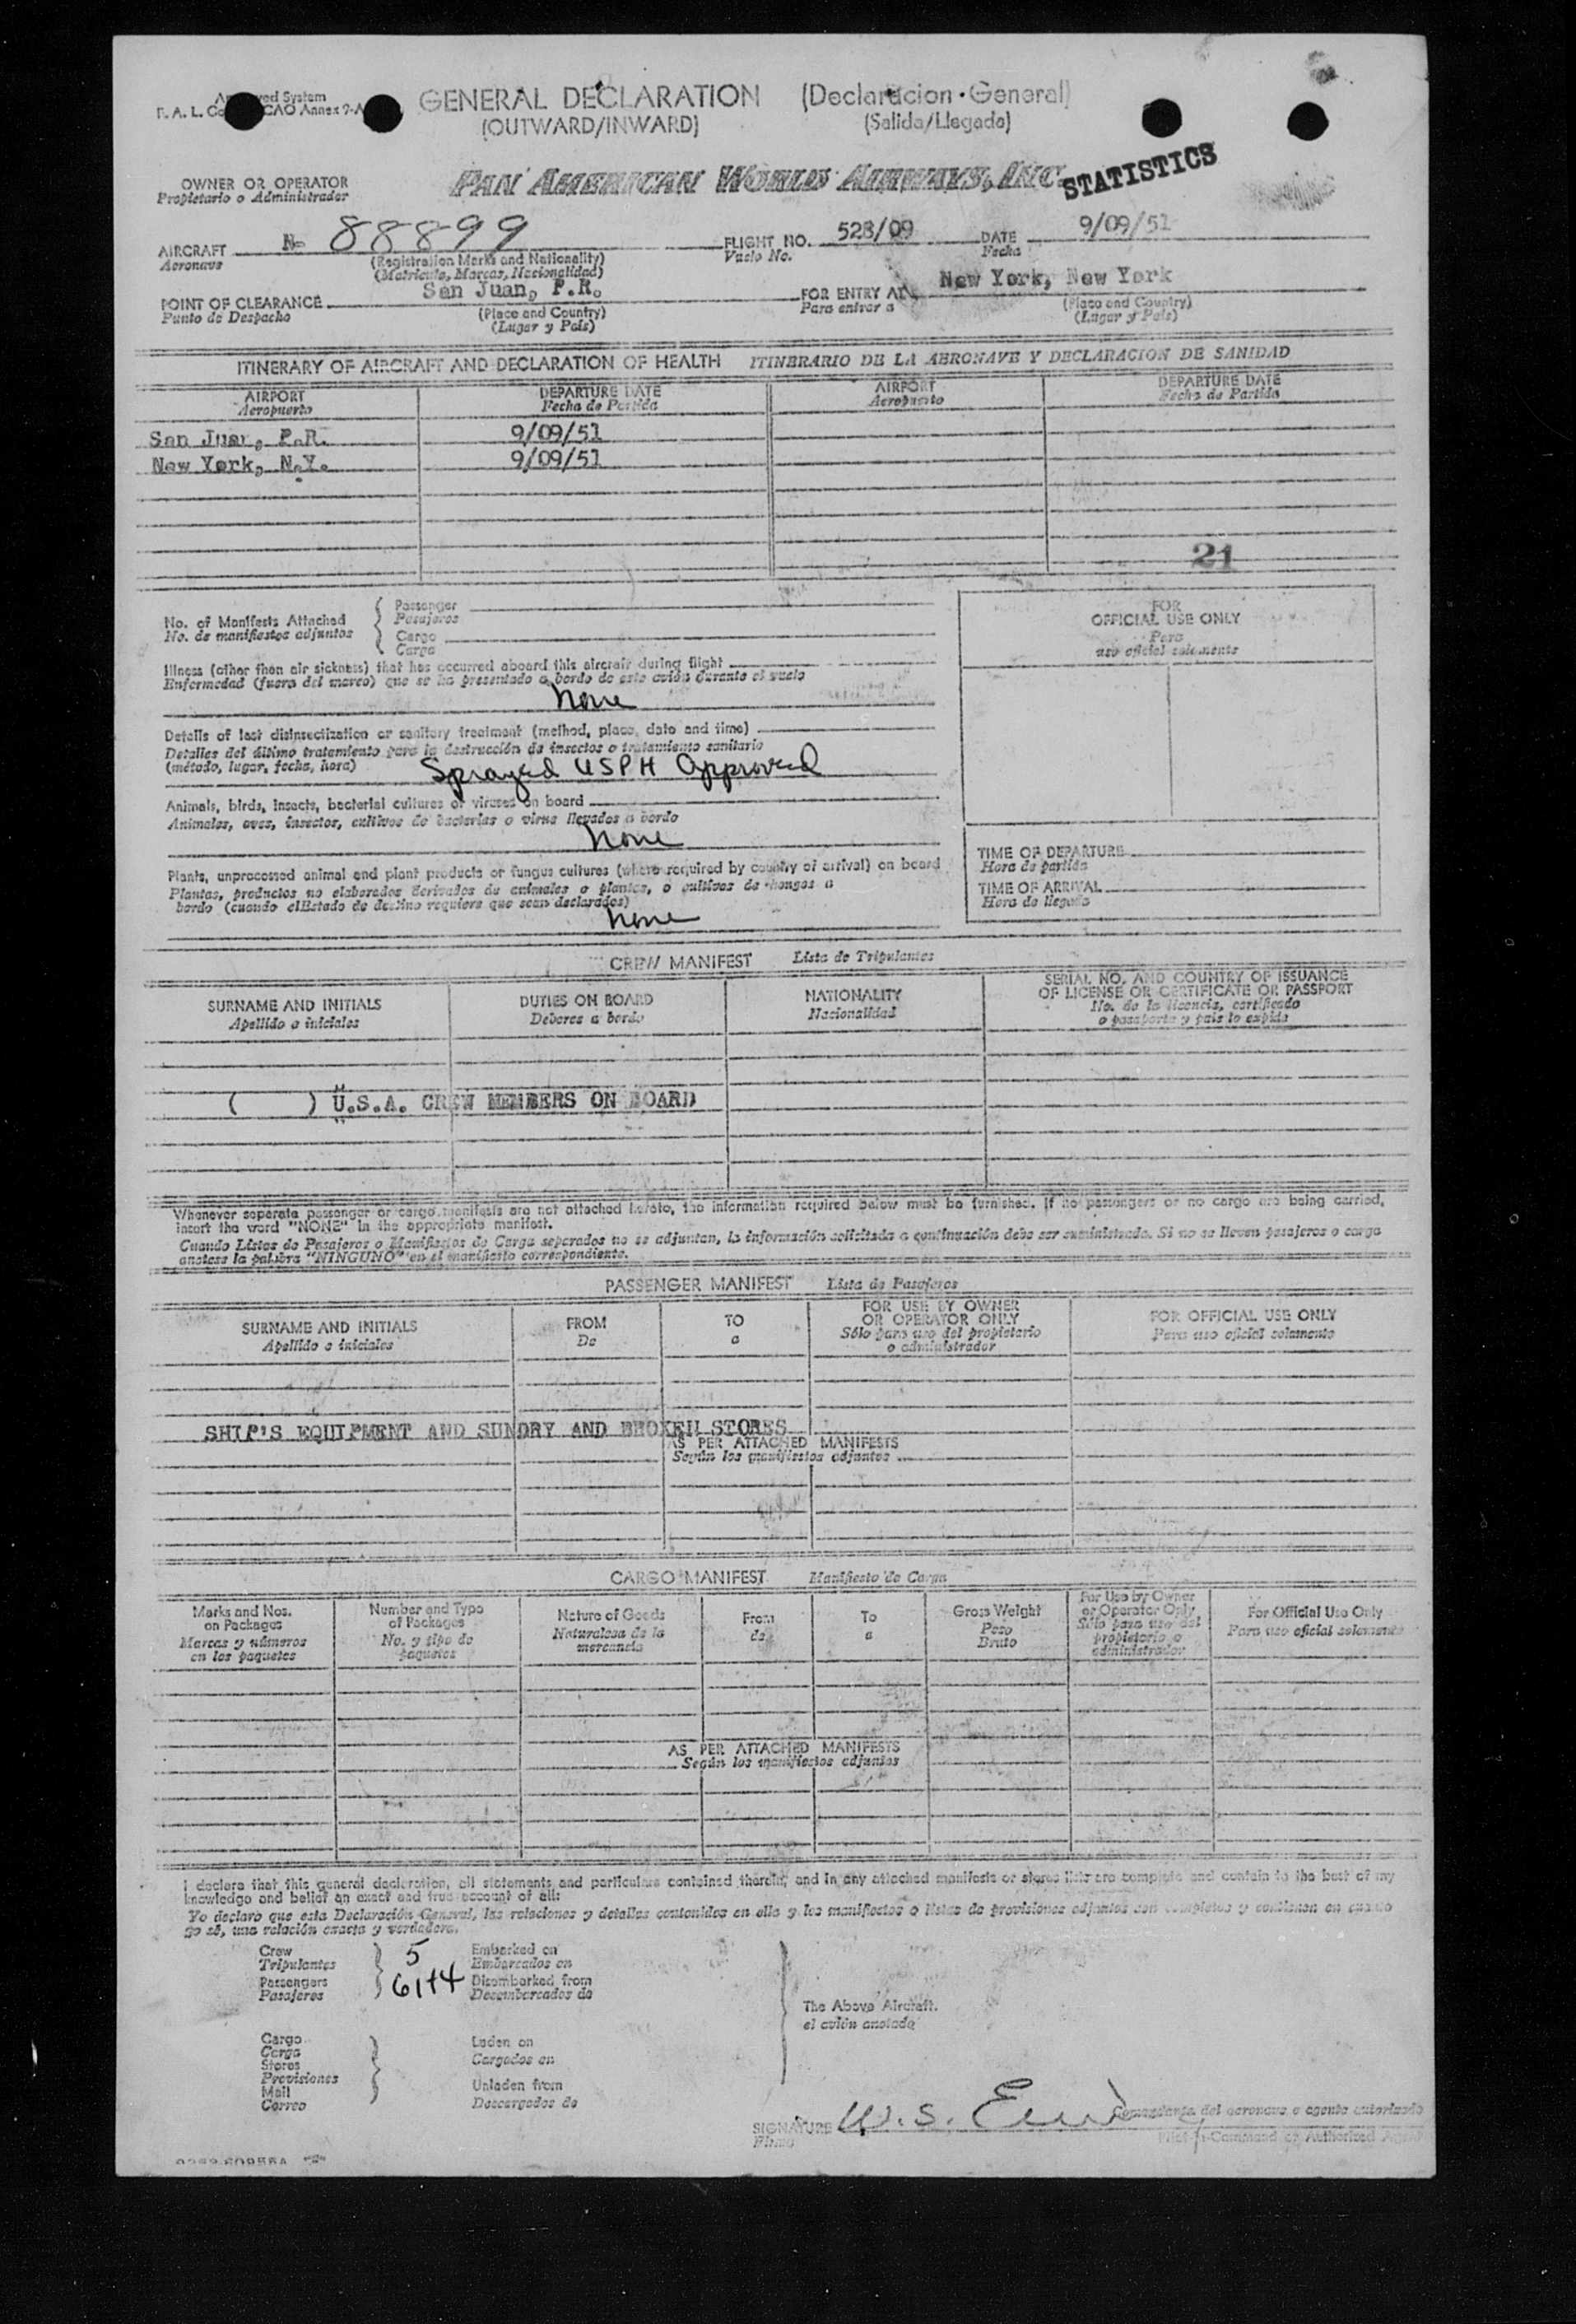 GENERAL DECLARATION (Declaracion·General)
(OUTWARD/INWARD) (Salida/Llegada)
OWNER OR OPERATOR PAN AMERICAN WORLD AIRWAYS, INC. STATISTICS
Propietario o Administrador
AIRCRAFT N- 88899 FLIGHT NO. 528/09 DATE 9/09/51
Aeronave (Registration Marks and Nationality) Vuelo No. Fecha
(Matricula, Marcas, Nacionalidad)
POINT OF CLEARANCE San Juan, P.R. FOR ENTRY AT New York, New York
Punto de Despacho (Place and Country) Para entrar a (Place and Country)
(Lugar y País) (Lugar y País)
ITINERARY OF AIRCRAFT AND DECLARATION OF HEALTH ITINERARIO DE LA AERONAVE Y DECLARACION DE SANIDAD
AIRPORT DEPARTURE DATE AIRPORT DEPARTURE DATE
Aeropuerto Fecha de Partida Aeropuerto Fecha de Partida
San Juan, P.R. 9/09/51
New York, N.Y. 9/09/51
21
No. of Manifests Attached Passenger
No. de manifiestos adjuntos Pasajeros
Cargo
Carga
FOR
OFFICIAL USE ONLY
Para
uso oficial solamente
Illness (other than air sickness) that has occurred aboard this aircraft during flight
Enfermedad (fuera del mareo) que se ha presentado a bordo de este avión durante el vuelo
None
Details of last disinsectization or sanitary treatment (method, place, date and time)
Detalles del último tratamiento para la destrucción de insectos o tratamiento sanitario
(método, lugar, fecha, hora) Sprayed USPH Approved
Animals, birds, insects, bacterial cultures or viruses on board
Animales, aves, insectos, cultivos de bacterias o virus llevados a bordo
None
Plants, unprocessed animal and plant products or fungus cultures (where required by country of arrival) on board
Plantas, productos no elaborados derivados de animales o plantas, o cultivos de hongos a
bordo (cuando el Estado de destino requiera que sean declarados)
None
TIME OF DEPARTURE
Hora de partida
TIME OF ARRIVAL
Hora de llegada
CREW MANIFEST Lista de Tripulantes
SURNAME AND INITIALS DUTIES ON BOARD NATIONALITY SERIAL NO. AND COUNTRY OF ISSUANCE
OF LICENSE OR CERTIFICATE OR PASSPORT
Apellido e iniciales Deberes a bordo Nacionalidad No. de la licencia, certificado
o pasaporte y país lo expide
( ) U.S.A. CREW MEMBERS ON BOARD
Whenever separate passenger or cargo manifests are not attached hereto, the information required below must be furnished. If no passengers or no cargo are being carried,
insert the word "NONE" in the appropriate manifest.
Cuando Listas de Pasajeros o Manifiestos de Carga separados no se adjuntan, la información solicitada a continuación debe ser suministrada. Si no se lleven pasajeros o carga
anotese la palabra "NINGUNO" en el manifiesto correspondiente.
PASSENGER MANIFEST Lista de Pasajeros
SURNAME AND INITIALS FROM TO FOR USE BY OWNER
OR OPERATOR ONLY FOR OFFICIAL USE ONLY
Apellido e iniciales De a Sólo para uso del propietario
o administrador Para uso oficial solamente
SHIP'S EQUIPMENT AND SUNDRY AND BROKEN STORES
AS PER ATTACHED MANIFESTS
Según los manifiestos adjuntos
CARGO MANIFEST Manifiesto de Carga
Marks and Nos.
on Packages
Marcas y números
en los paquetes
Number and Type
of Packages
No. y tipo de
paquetes
Nature of Goods
Naturalesa de la
mercancia
From
de
To
a
Gross Weight
Peso
Bruto
For Use by Owner
or Operator Only
Sólo para uso del
propietario o
administrador
For Official Use Only
Para uso oficial solamente
AS PER ATTACHED MANIFESTS
Según los manifiestos adjuntos
I declare that this general declaration, all statements and particulars contained therein, and in any attached manifests or stores lists are complete and contain to the best of my
knowledge and belief an exact and true account of all:
Yo declaro que esta Declaración General, las relaciones y detalles contenidos en ella y los manifiestos o listas de provisiones adjuntos son completos y contienen en cuanto
yo sé, una relación exacta y verdadera.
Crew 5 Embarked on
Tripulantes Embarcados en
Passengers 61+4 Disembarked from
Pasajeros Desembarcados de
The Above Aircraft.
el avión anotado
Cargo Laden on
Carga Cargados en
Stores
Provisiones
Mail Unladen from
Correo Descargados de
SIGNATURE W. S.
Firma
Comandante del aeronave o agente autorizado
Pilot in-Command or Authorized Agent